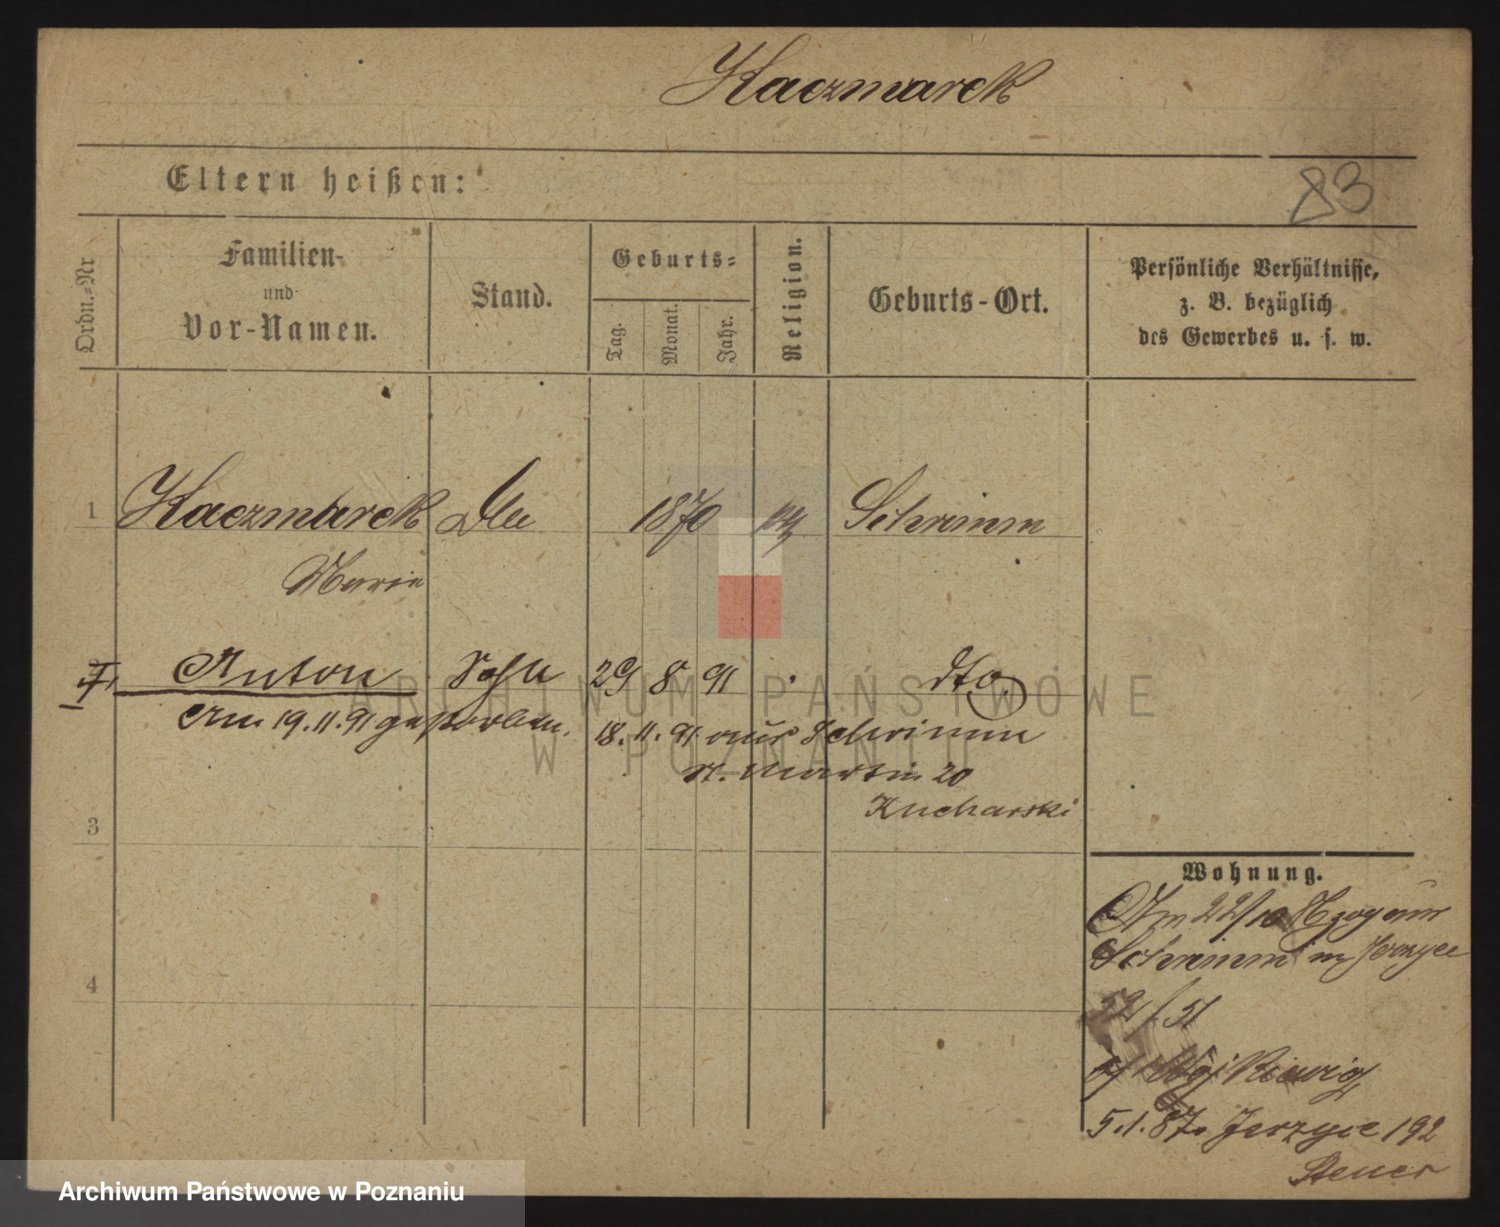 Kaczmarek
Eltern heißen:
83
Ordn.=Nr
Familien-
und
Vor-Namen.
Stand.
Geburts=
Tag.
Monat.
Jahr.
Religion.
Geburts-Ort.
Persönliche Verhältnisse,
z. B. bezüglich
des Gewerbes u. s. w.
1 Kaczmarek 1870 Schrimm
Marie
Anton Sohn 29 8 91 dto
Am 19.11.91 gestorben. 18.11.91 aus Schrimm
St. Martin 20
Kucharski
3
4
Wohnung.
Am 22/10 Zzog aus
Schrimm in
52/51
5.1.87. Jerzyce 192
Steuer
ARCHIWUM PAŃSTWOWE
W POZNANIU
Archiwum Państwowe w Poznaniu